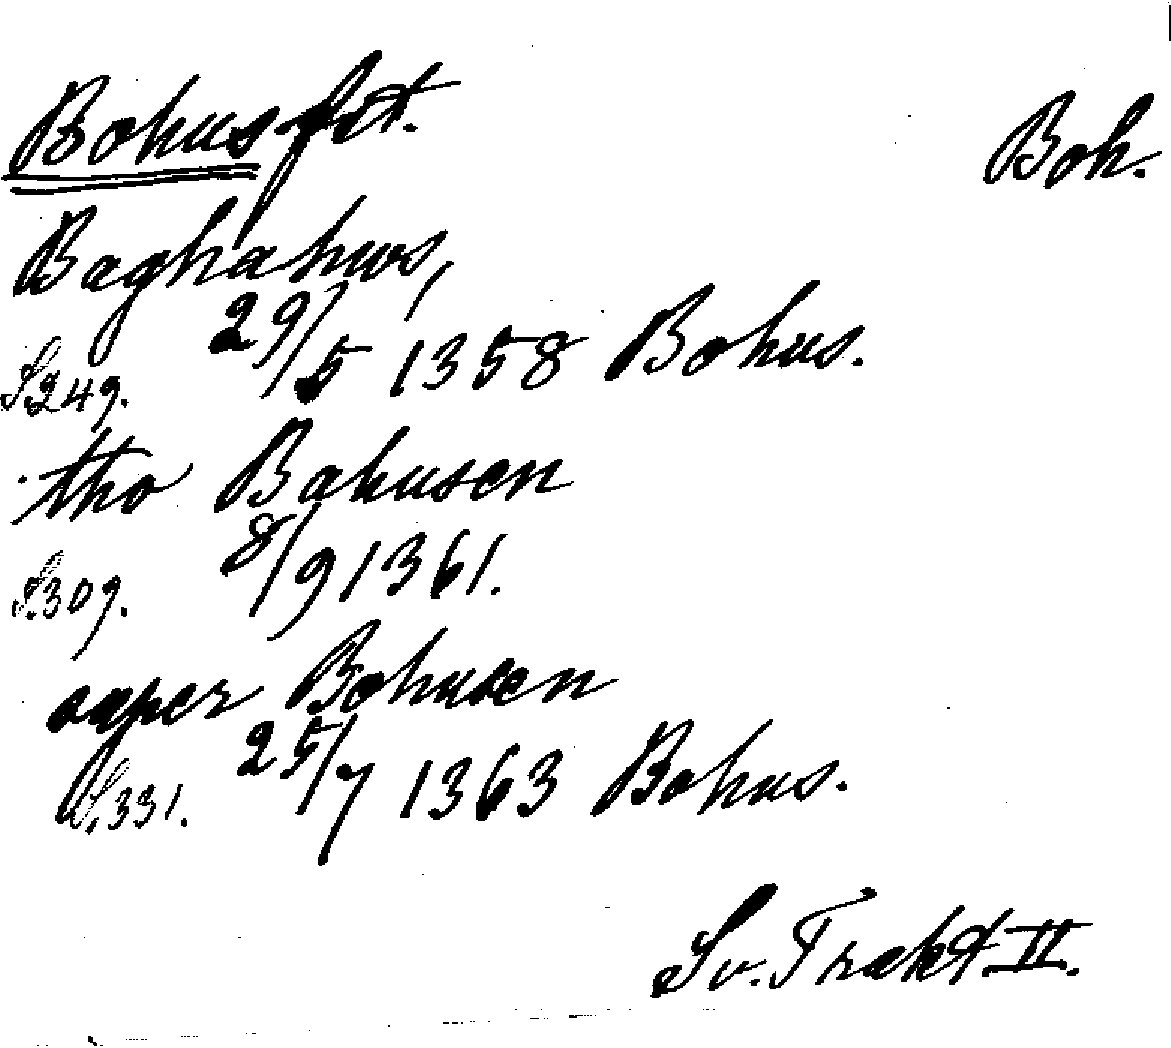 Bohus fst. Boh.
Baghahws,
S. 249. 29/5 1358 Bohus.
tho Bahusen
S. 309. 8/9 1361.
opper Bohusen
S. 331. 25/7 1363 Bohus.
Sv. Trakt II.